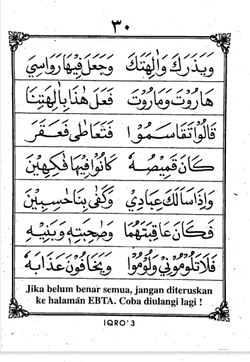 ٣٠
وَيَذَرَكَ وَاٰلِهَتَكَ وَجَعَلَ فِيْهَا رَوَاسِيَ
هَارُوْتَ وَمَارُوْتَ فَعَلَ هٰذَا بِاٰلِهَتِنَا
قَالُوْا تَقَاسَمُوْا فَتَعَاطٰى فَعَقَرَ
كَانَ قَمِيْصُهٗ كَانُوْا فِيْهَا فٰكِهِيْنَ
وَاِذَا سَاَلَكَ عِبَادِيْ وَكَفٰى بِنَا حَاسِبِيْنَ
فَكَانَ عَاقِبَتَهُمَا وَصَاحِبَتِهٖ وَبَنِيْهِ
فَلَا تَلُوْمُوْنِيْ وَلُوْمُوْا وَيَخَافُوْنَ عَذَابَهٗ
Jika belum benar semua, jangan diteruskan
ke halaman EBTA. Coba diulangi lagi !
IQRO' 3